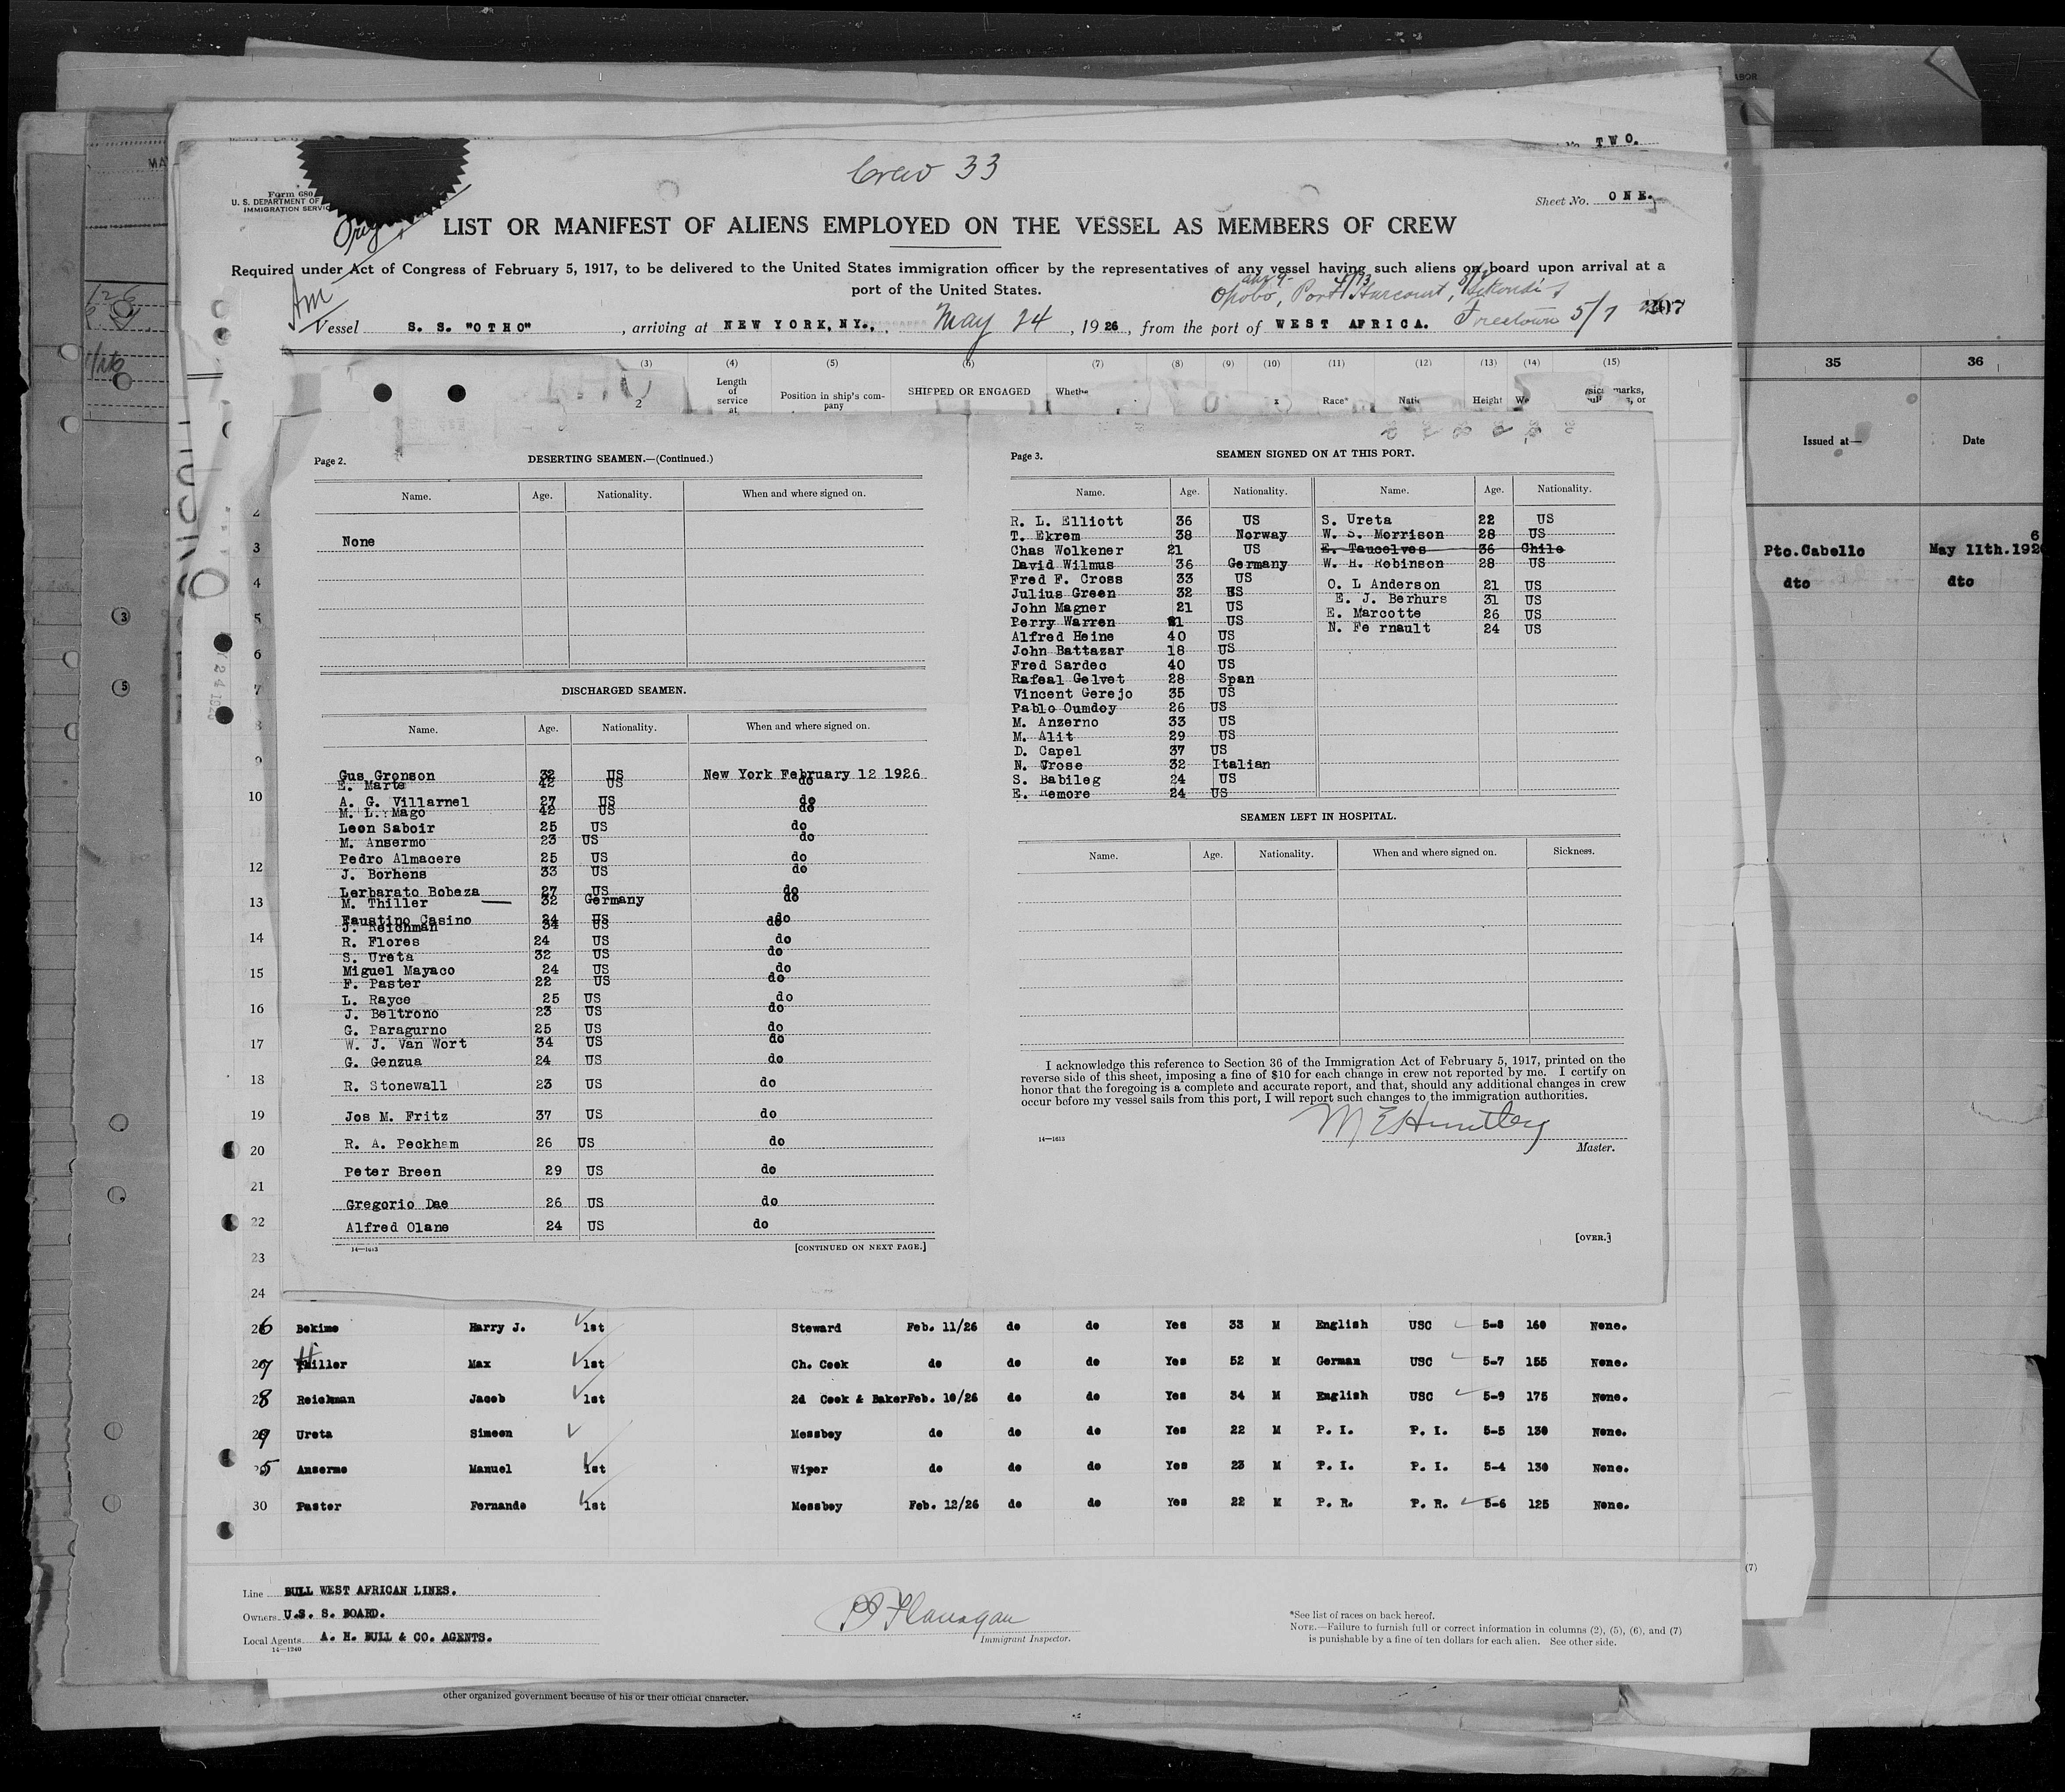 TWO.
Crew 33
Form 680
U. S. DEPARTMENT OF
IMMIGRATION SERVIC
Sheet No. ONE.
LIST OR MANIFEST OF ALIENS EMPLOYED ON THE VESSEL AS MEMBERS OF CREW
Required under Act of Congress of February 5, 1917, to be delivered to the United States immigration officer by the representatives of any vessel having such aliens on board upon arrival at a
port of the United States.
Opobo, Port Harcourt, Sekondi
Am
Vessel S. S. "OTHO", arriving at NEW YORK, NY., May 24, 1926, from the port of WEST AFRICA. Freetown 5/7
(3) (4) (5) (6) (7) (8) (9) (10) (11) (12) (13) (14) (15)
Length of service at
Position in ship's company
SHIPPED OR ENGAGED
Race*
Height
Page 2. DESERTING SEAMEN.—(Continued.)
Name. Age. Nationality. When and where signed on.
None
DISCHARGED SEAMEN.
Name. Age. Nationality. When and where signed on.
Gus Gronson 32 US New York February 12 1926
E. Marte 42 US do
A. G. Villarnel 27 US do
M. L. Mago 42 US do
Leon Saboir 25 US do
M. Ansermo 23 US do
Pedro Almacere 25 US do
J. Borhens 33 US do
Lerbarato Bobeza 27 US do
M. Thiller 32 Germany do
Faustino Casino 24 US do
J. Reichman 34 US do
R. Flores 24 US do
S. Ureta 32 US do
Miguel Mayaco 24 US do
F. Paster 22 US do
L. Rayce 25 US do
J. Beltrono 23 US do
G. Paragurno 25 US do
W. J. Van Wort 34 US do
G. Genzua 24 US do
R. Stonewall 23 US do
Jos M. Fritz 37 US do
R. A. Peckham 26 US do
Peter Breen 29 US do
Gregorio Dae 26 US do
Alfred Olane 24 US do
14—1613 [CONTINUED ON NEXT PAGE.]
Page 3. SEAMEN SIGNED ON AT THIS PORT.
Name. Age. Nationality. Name. Age. Nationality.
R. L. Elliott 36 US S. Ureta 22 US
T. Ekrem 38 Norway W. S. Morrison 28 US
Chas Wolkener 21 US E. Taucelves 36 Chile
David Wilmus 36 Germany W. H. Robinson 28 US
Fred F. Cross 33 US O. L Anderson 21 US
Julius Green 32 US E. J. Berhurs 31 US
John Magner 21 US E. Marcotte 26 US
Perry Warren 21 US N. Fe rnault 24 US
Alfred Heine 40 US
John Battazar 18 US
Fred Sardec 40 US
Rafeal Gelvet 28 Span
Vincent Gerejo 35 US
Pablo Oumdoy 26 US
M. Anzerno 33 US
M. Alit 29 US
D. Capel 37 US
N. Crose 32 Italian
S. Babileg 24 US
E. Remore 24 US
SEAMEN LEFT IN HOSPITAL.
Name. Age. Nationality. When and where signed on. Sickness.
I acknowledge this reference to Section 36 of the Immigration Act of February 5, 1917, printed on the
reverse side of this sheet, imposing a fine of $10 for each change in crew not reported by me. I certify on
honor that the foregoing is a complete and accurate report, and that, should any additional changes in crew
occur before my vessel sails from this port, I will report such changes to the immigration authorities.
M E Huntley
14—1613 Master.
[OVER.]
3
4
5
6
7
8
9
10
12
13
14
15
16
17
18
19
20
21
22
23
24
26 Bekime Harry J. 1st Steward Feb. 11/26 do do Yes 33 M English USC 5-8 160 None.
27 Thiller Max 1st Ch. Cook do do do Yes 52 M German USC 5-7 155 None.
28 Reichman Jacob 1st 2d Cook & Baker Feb. 10/26 do do Yes 34 M English USC 5-9 175 None.
29 Ureta Simeon Messboy do do do Yes 22 M P. I. P. I. 5-5 130 None.
5 Anserme Manuel 1st Wiper do do do Yes 23 M P. I. P. I. 5-4 130 None.
30 Paster Fernande 1st Messboy Feb. 12/26 do do Yes 22 M P. R. P. R. 5-6 125 None.
Line BULL WEST AFRICAN LINES.
Owners U.S. S. BOARD.
Local Agents A. H. BULL & CO. AGENTS.
14—1240
Flanagan
Immigrant Inspector.
*See list of races on back hereof.
NOTE.—Failure to furnish full or correct information in columns (2), (5), (6), and (7)
is punishable by a fine of ten dollars for each alien. See other side.
other organized government because of his or their official character.
35 36
Issued at— Date
Pto.Cabello May 11th.1926
dto dto
(7)